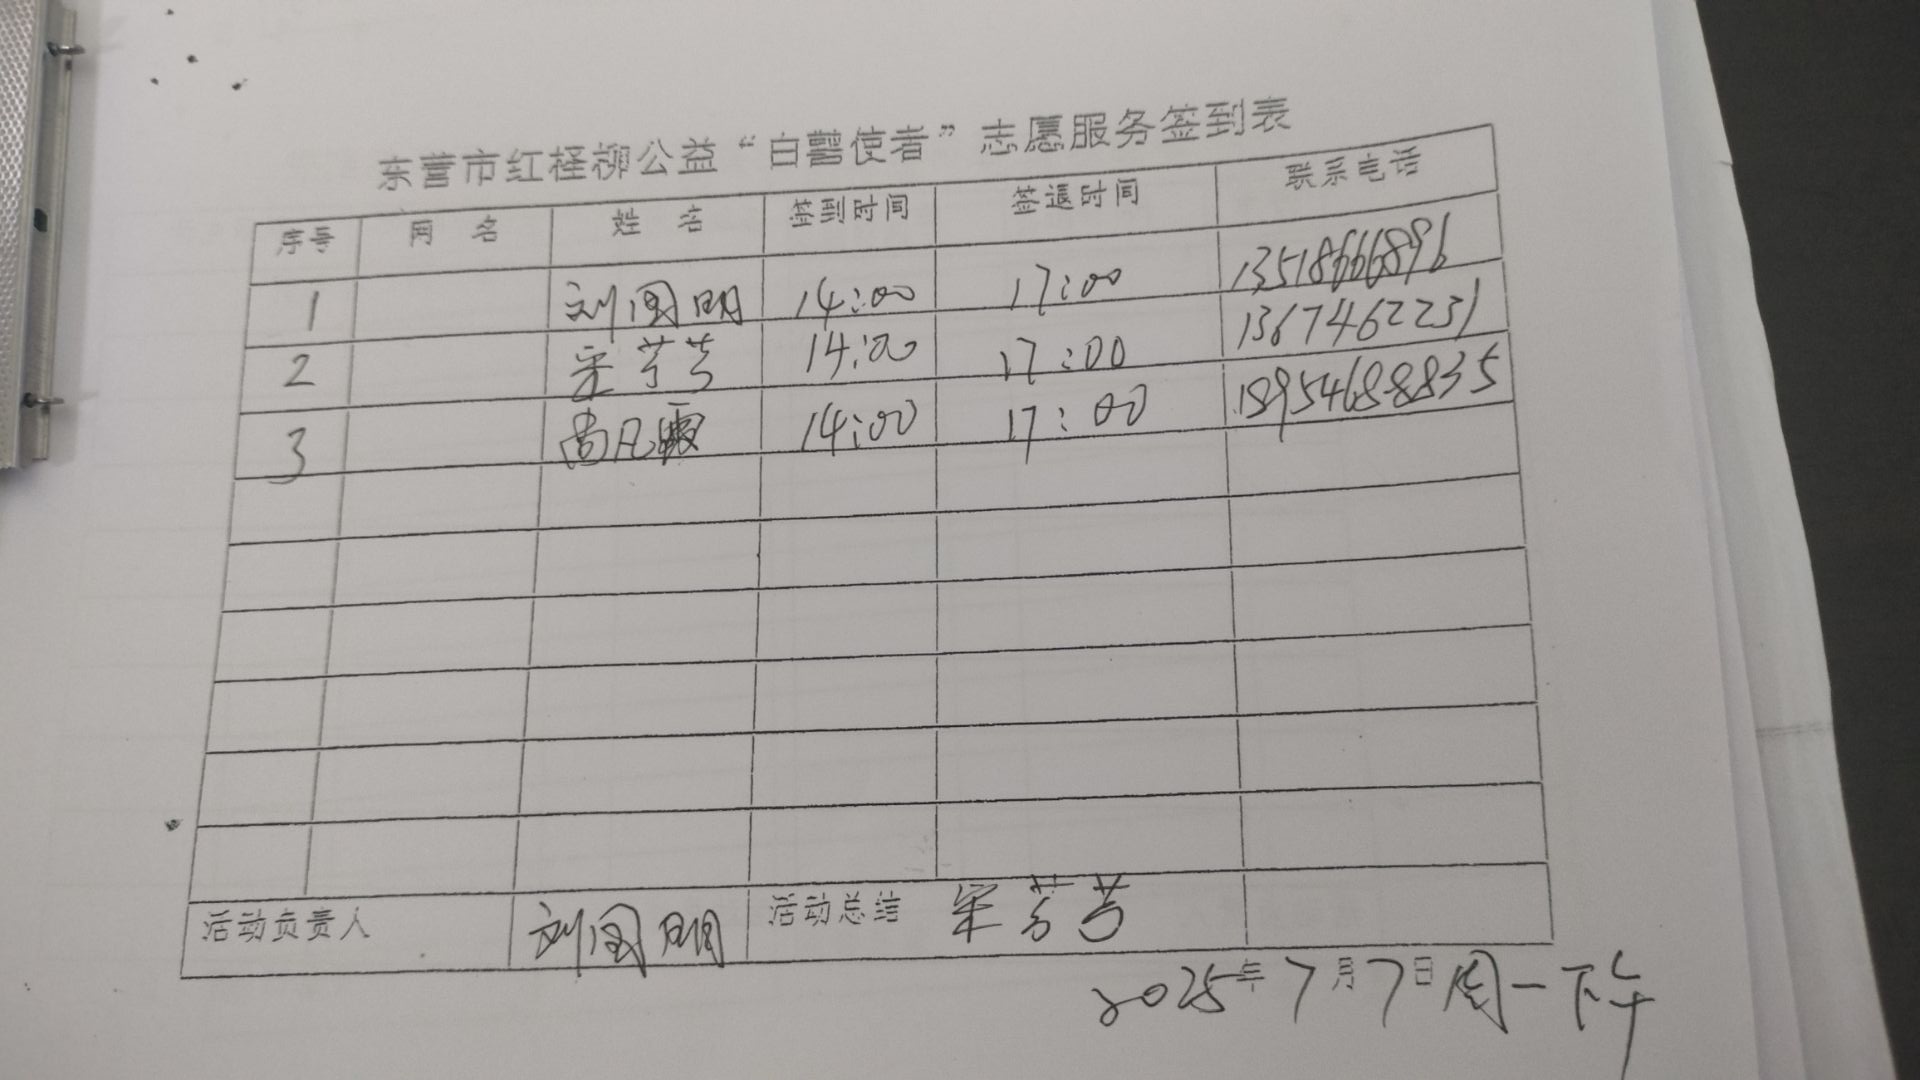 东营市红柽柳公益“白鹭使者”志愿服务签到表
序号 网名 姓名 签到时间 签退时间 联系电话
1 刘国明 14:00 17:00 13518666896
2 宋芳芳 14:00 17:00 1367462231
3 尚凡霞 14:00 17:00 18954688835
活动负责人 刘国明 活动总结 宋芳芳
2025年7月7日周一下午